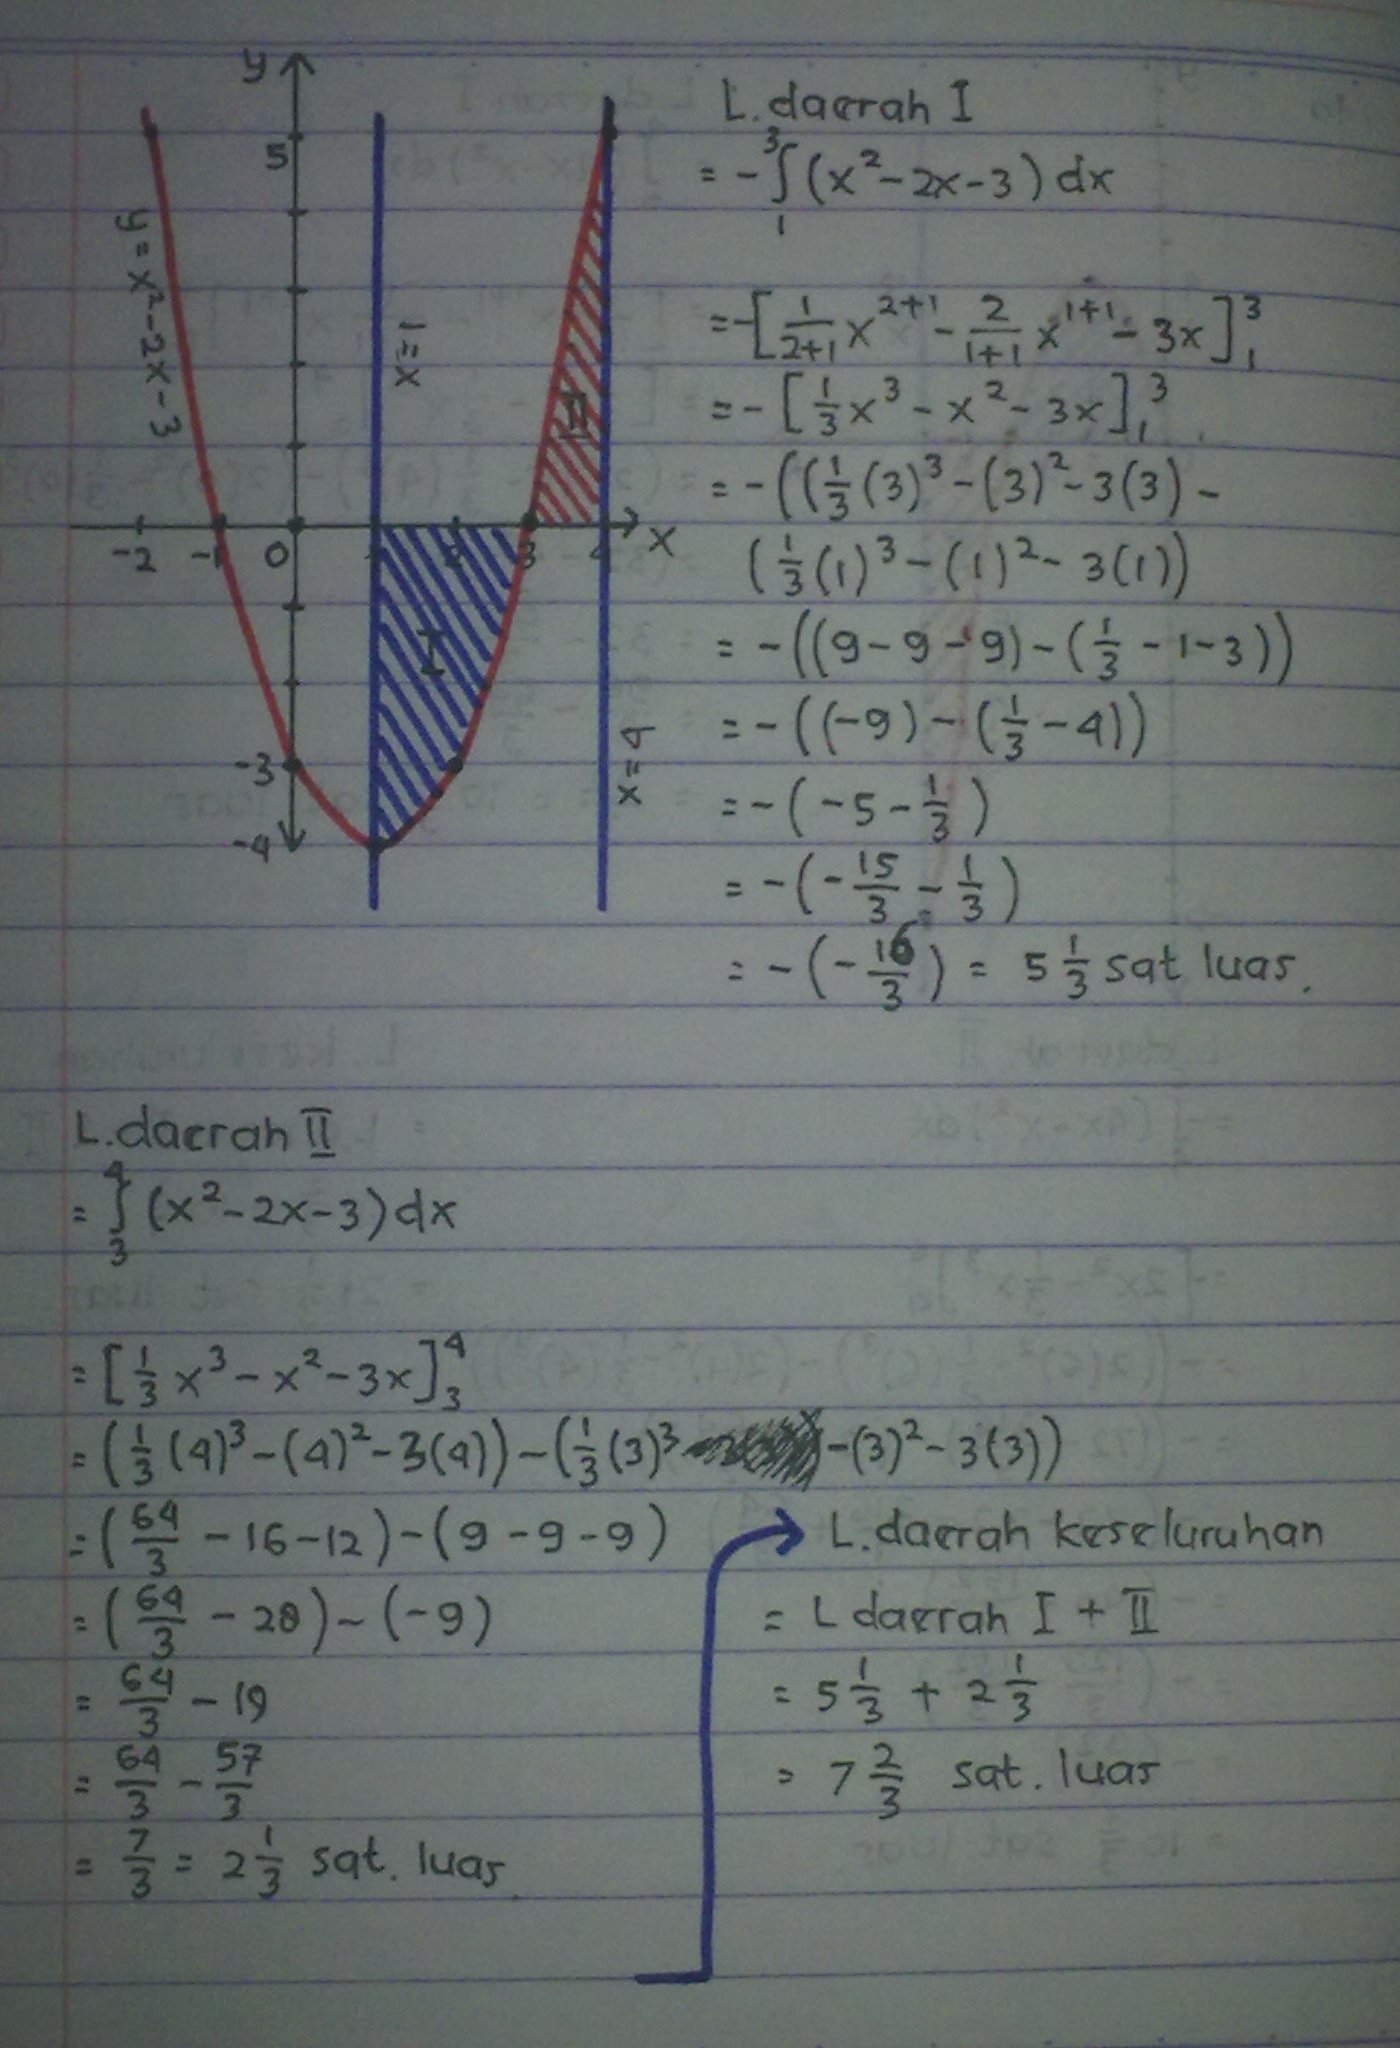 y
5
y = x² - 2x - 3
x=1
II
-2 -1 0 1 2 3 4 x
I
-3
x = 4
-4
L. daerah I
= - ∫₁³ (x² - 2x - 3) dx
= -[1/(2+1) x²⁺¹ - 2/(1+1) x¹⁺¹ - 3x]₁³
= - [1/3 x³ - x² - 3x]₁³
= - ((1/3 (3)³ - (3)² - 3(3) -
(1/3 (1)³ - (1)² - 3(1))
= - ((9 - 9 - 9) - (1/3 - 1 - 3))
= - ((-9) - (1/3 - 4))
= - (-5 - 1/3)
= - (-15/3 - 1/3)
= - (-16/3) = 5 1/3 sat luas.
L. daerah II
= ∫₃⁴ (x² - 2x - 3) dx
= [1/3 x³ - x² - 3x]₃⁴
= (1/3 (4)³ - (4)² - 3(4)) - (1/3 (3)³ - (3)² - 3(3))
= (64/3 - 16 - 12) - (9 - 9 - 9)
= (64/3 - 28) - (-9)
= 64/3 - 19
= 64/3 - 57/3
= 7/3 = 2 1/3 sat. luas.
L. daerah keseluruhan
= L daerah I + II
= 5 1/3 + 2 1/3
= 7 2/3 sat. luas